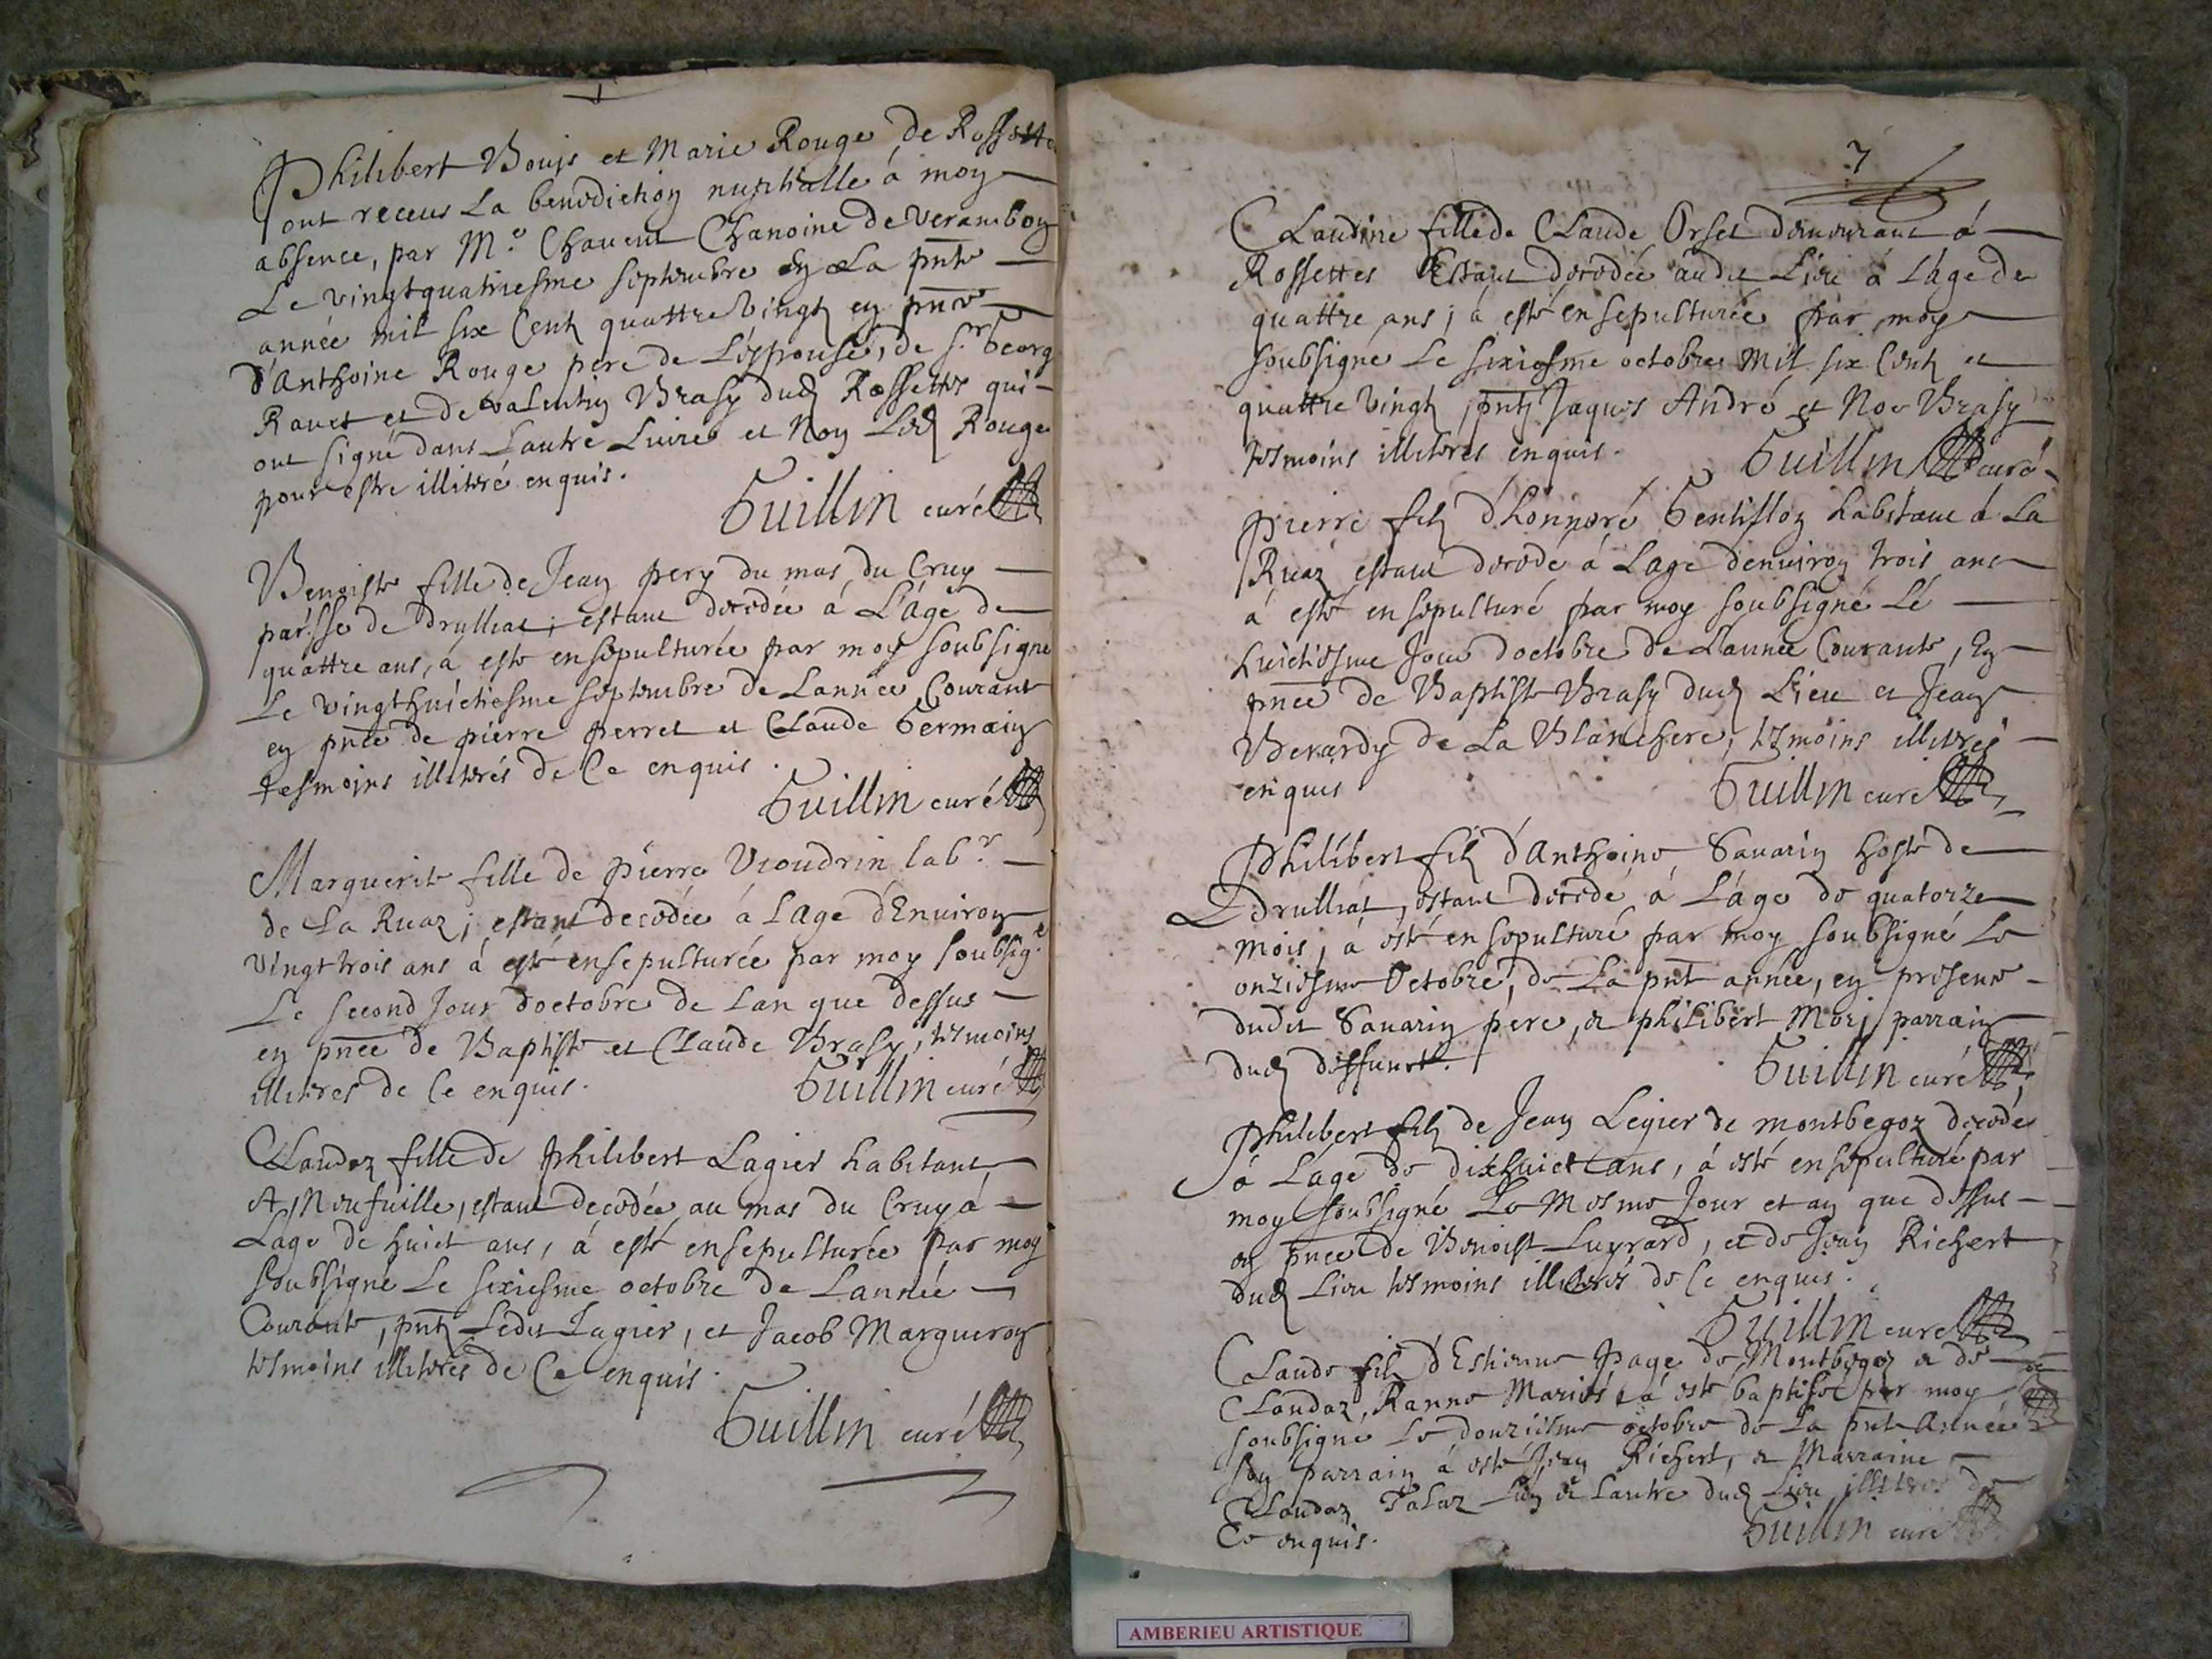 Philibert Bouis et Marie Rouge de Rossette
ont receus La benediction nuptialle á moy
absence, par M.e Chanoine de Verambon
Le vingtquatriesme septembre en La pnte
année mil six Cent quattre vingt en pnce
d'Anthoine Rouge pere de L'espouse, de s.r Georg
Ravet et de valentin Brasy dud Rossettes qui
ont signé dans Lautre Livre et Non Led Rouge
pour estre illiteré enquis.
Guillin curé
Benoiste fille de Jean pery du mas du Cruy
par.sse de Drulliat; estant decedée á L'áge de
quattre ans, á esté ensepulturée par moy soubsigné
Le vingthuictiesme septembre de Lannée Courant
en pnce de pierre perret et Claude Germain
tesmoins illiterés de Ce enquis.
Guillin curé
Marguerite fille de pierre Vioudrin lab.r
de La Ruaz; estant decedée á Lage d'Environ
vingt trois ans á esté ensepulturée par moy soubsig.é
Le second Jour doctobre de Lan que dessus
en pnce de Baptiste et Claude Brasy, tesmoins
illiteres de Ce enquis.
Guillin curé
Claudaz fille de philibert Lagier habitant
A Neufuille, estant decedée au mas du Cruy á
Lage de huict ans, á esté ensepulturée par moy
soubsigné Le sixiesme octobre de Lannée
Courante, pntz Ledit Lagier, et Jacob Margueron
tesmoins illiterés de Ce enquis.
Guillin curé
7
Claudine fille de Claude Orset demeurant á
Rossettes Estant decedée audit Lieu á Láge de
quattre ans; á esté ensepulturée par moy
soubsigné Le sixiesme octobre Mil six Cent et
quattre vingt, pntz Jaques André et Noe Brasy
tesmoins illiterés enquis.
Guillin curé
pierre filz d'honnoré Gentillon habitant á La
Ruaz estant decedé á Lage denviron trois ans
á esté ensepulturé par moy soubsigné Le
huictiesme Jour doctobre de Lannée Courante, En
pnce de Baptiste Brasy dud Lieu et Jean
Berardy de La Blanchere, tesmoins illiterés
enquis
Guillin curé
Philibert filz d'Anthoine Savarin hoste de
Drulliat, estant decedé á Láge de quatorze
mois, á esté ensepulturé par moy soubsigné Le
onziesme Octobre, de La pnt année, en presence
dudit Savarin pere, et philibert parrain
dud deffunct.
Guillin curé
Philibert filz de Jean Legier de montbegoz decedé
á Láge de dixhuict ans, á esté ensepulturé par
moy soubsigné Le Mesme Jour et an que dessus
en pnce de Benoist Luyrard, et de Jean Richert
dud Lieu tesmoins illiterés de Ce enquis.
Guillin curé
Claude filz d'Estienne page de Montbegoz et de
Claudaz Ranno Mariés á esté baptisé par moy
soubsigné Le douziesme octobre de La pnte Année
son parrain á esté Jean Richert, et Marraine
Claudaz Palaz Lun et Lautre dud Lieu illiteres de
Ce enquis.
Guillin curé
AMBERIEU ARTISTIQUE